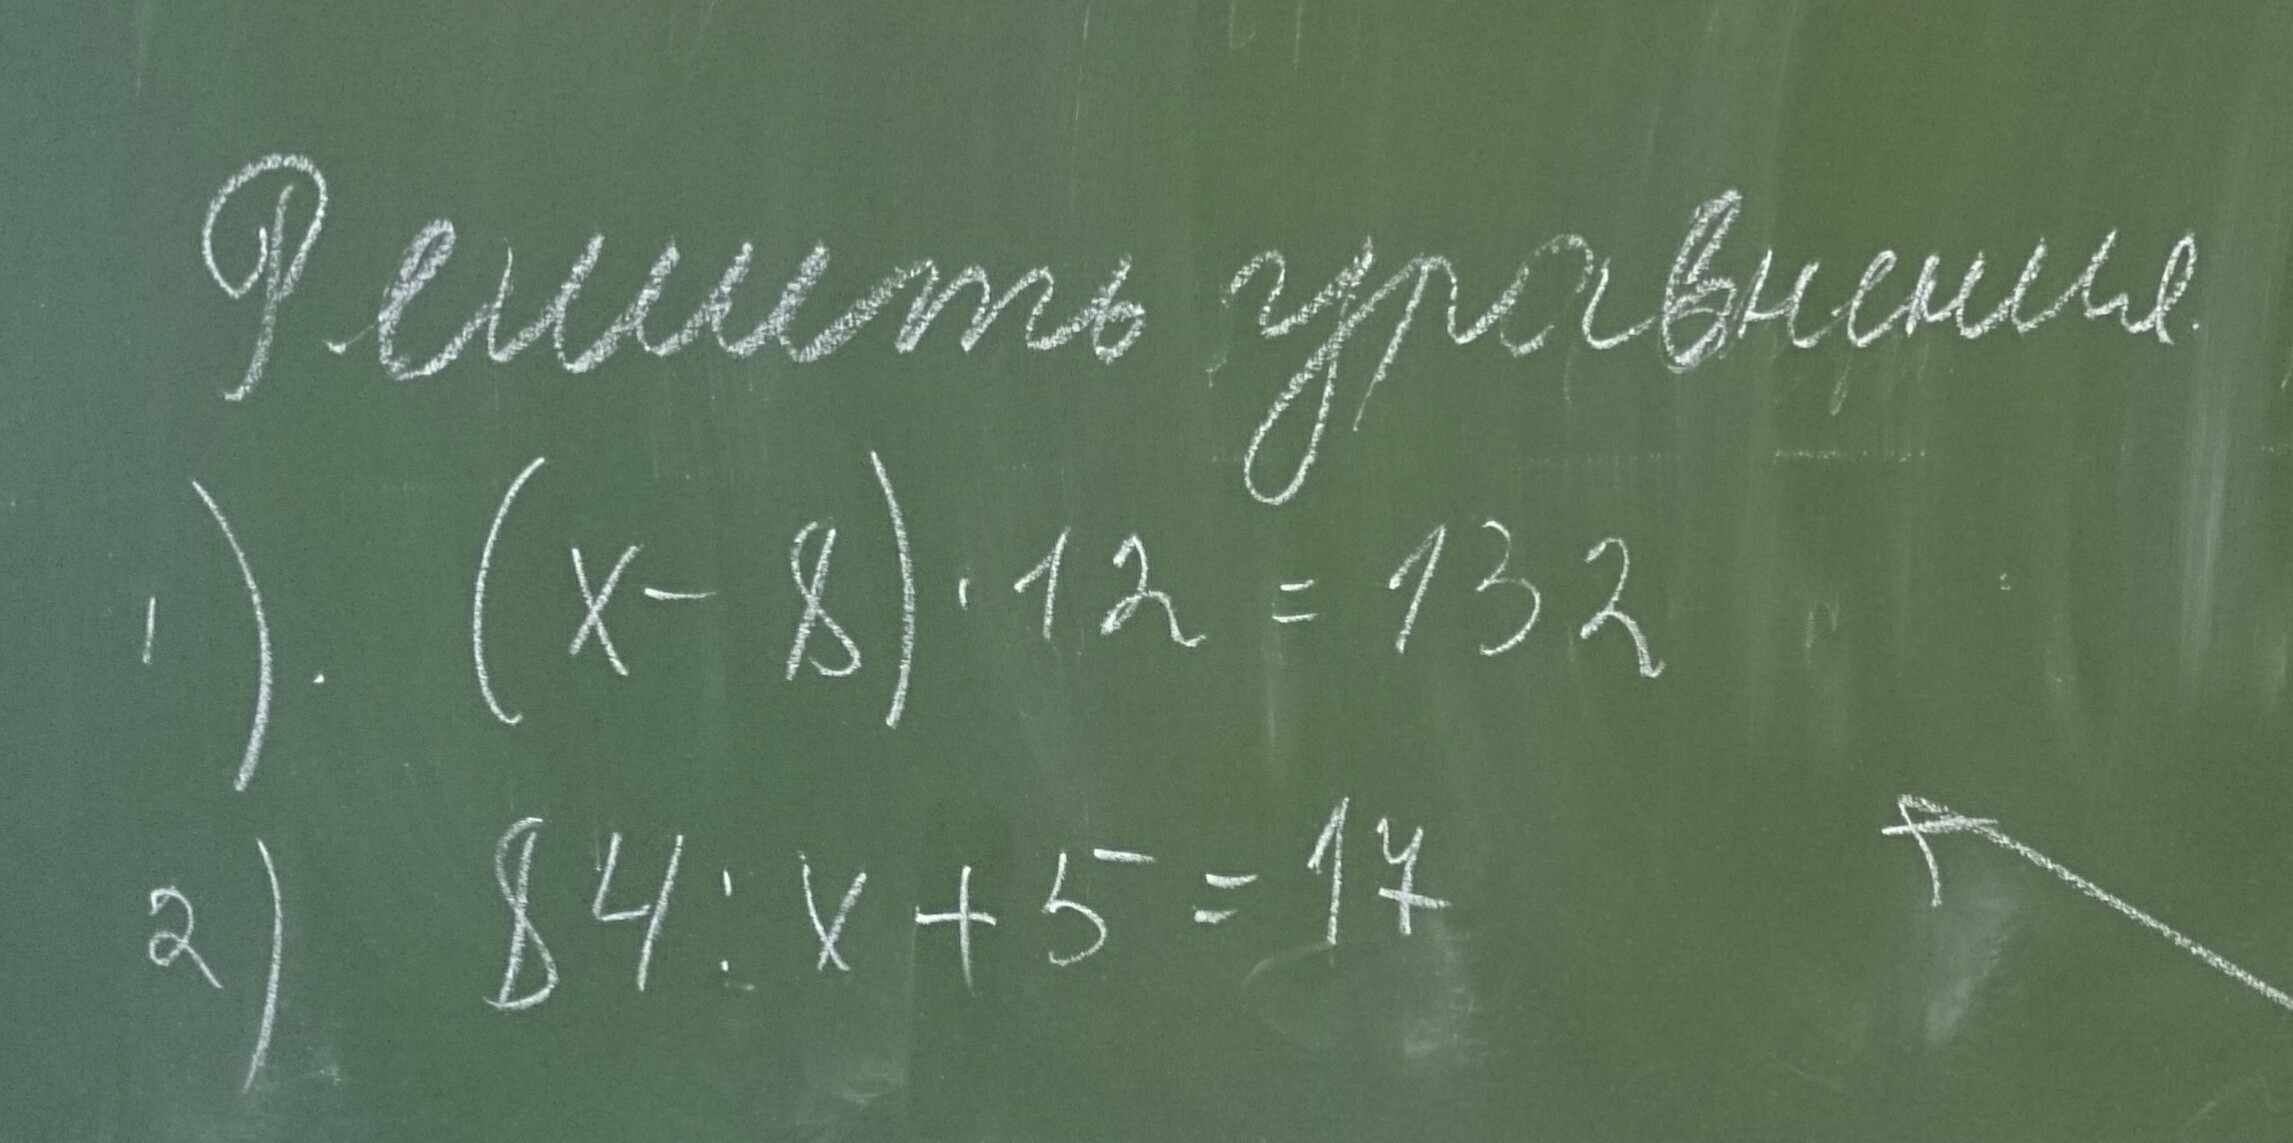 Решить уравнения
1). (x-8)·12=132
2) 84:x+5=17